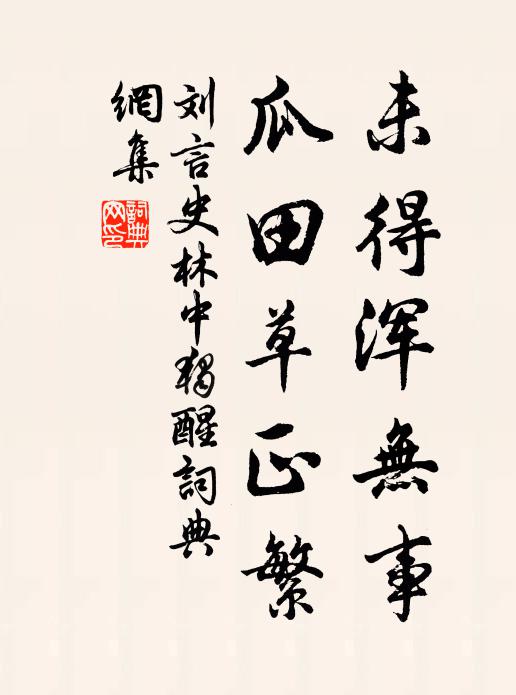 未得浑無事
瓜田草正繁
刘言史林中獨醒詞典
網集
詞典
网印